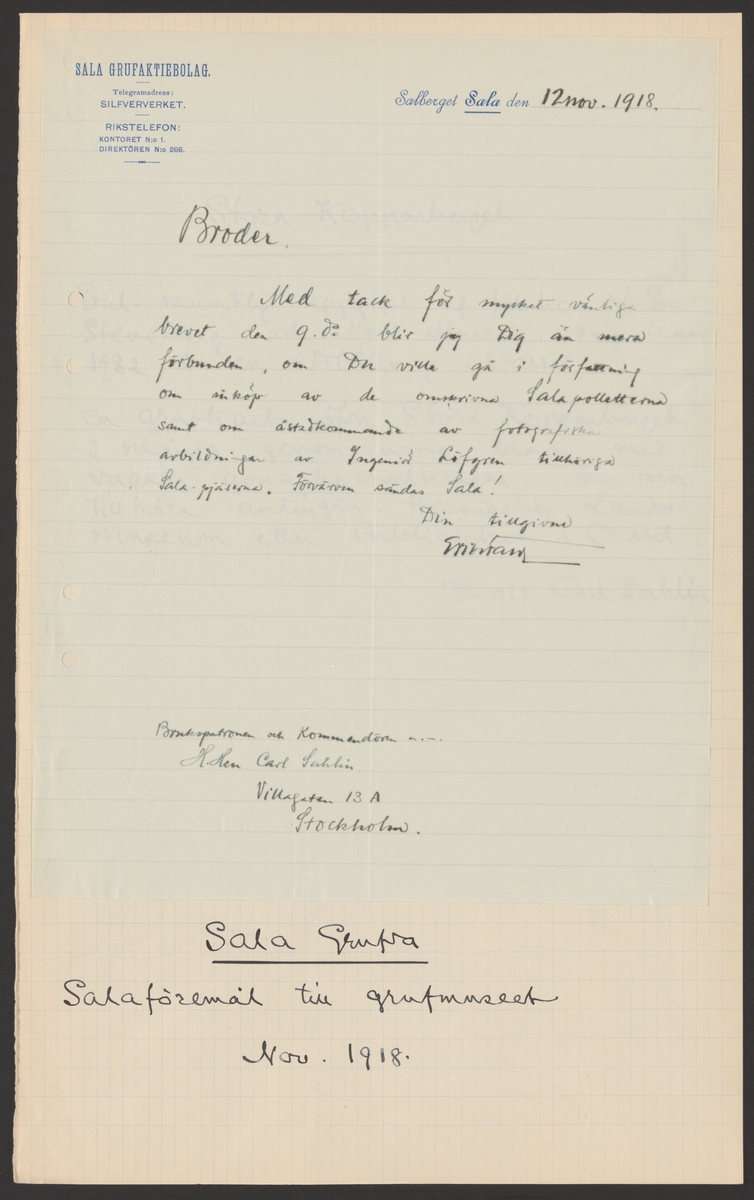 SALA GRUFAKTIEBOLAG.
Telegramadress:
SILFVERVERKET.
RIKSTELEFON:
KONTORET N:o 1.
DIREKTÖREN N:o 266.
Salberget Sala den 12 nov. 1918.
Broder.
Med tack för mycket vänliga
brevet den 9. ds blir jag Dig än mera
förbunden, om Du ville gå i författning
om inköp av de omskrivna Salapolletterna
samt om åstadkommande av fotografiska
avbildningar av Ingeniör Löfgren tillhöriga
Sala-pjäserna. Förvärven sändas Sala!
Din tillgivne
Brukspatronen och Kommendören m.m.
H.Herr Carl Sahlin
Villagatan 13 A
Stockholm.
Sala Grufva
Salaföremål till grufmuseet
Nov. 1918.